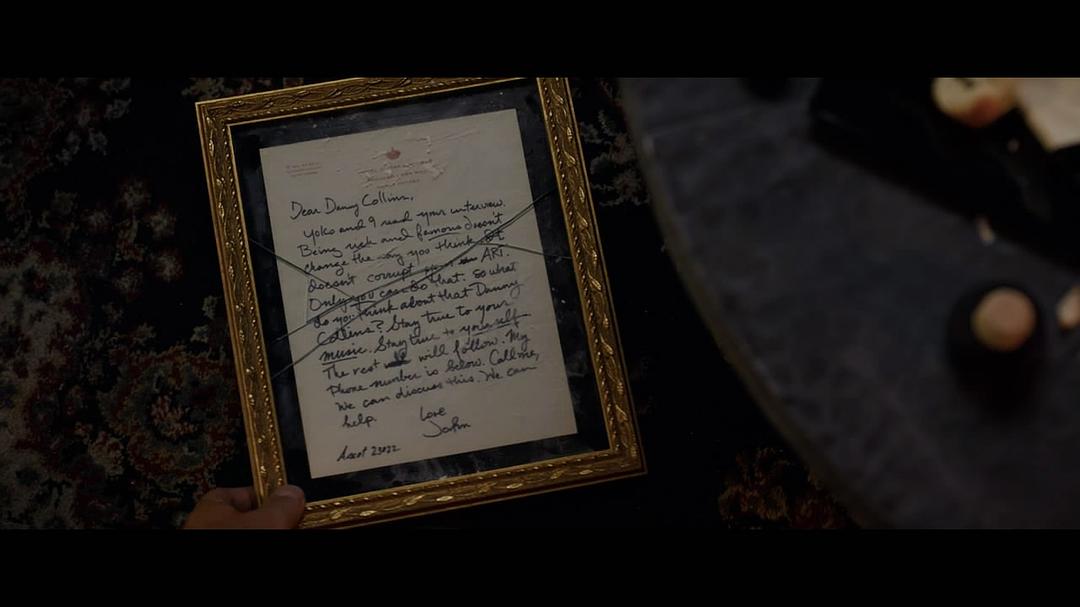 Dear Danny Collins,
Yoko and I read your interview.
Being rich and famous doesn't
change the way you think. It
doesn't corrupt your ART.
Only you can do that. So what
do you think about that Danny
Collins? Stay true to your
music. Stay true to yourself.
The rest will follow. My
Phone number is below. Call me,
We can discuss this. We can
help.
Love
John
Ascot 23022